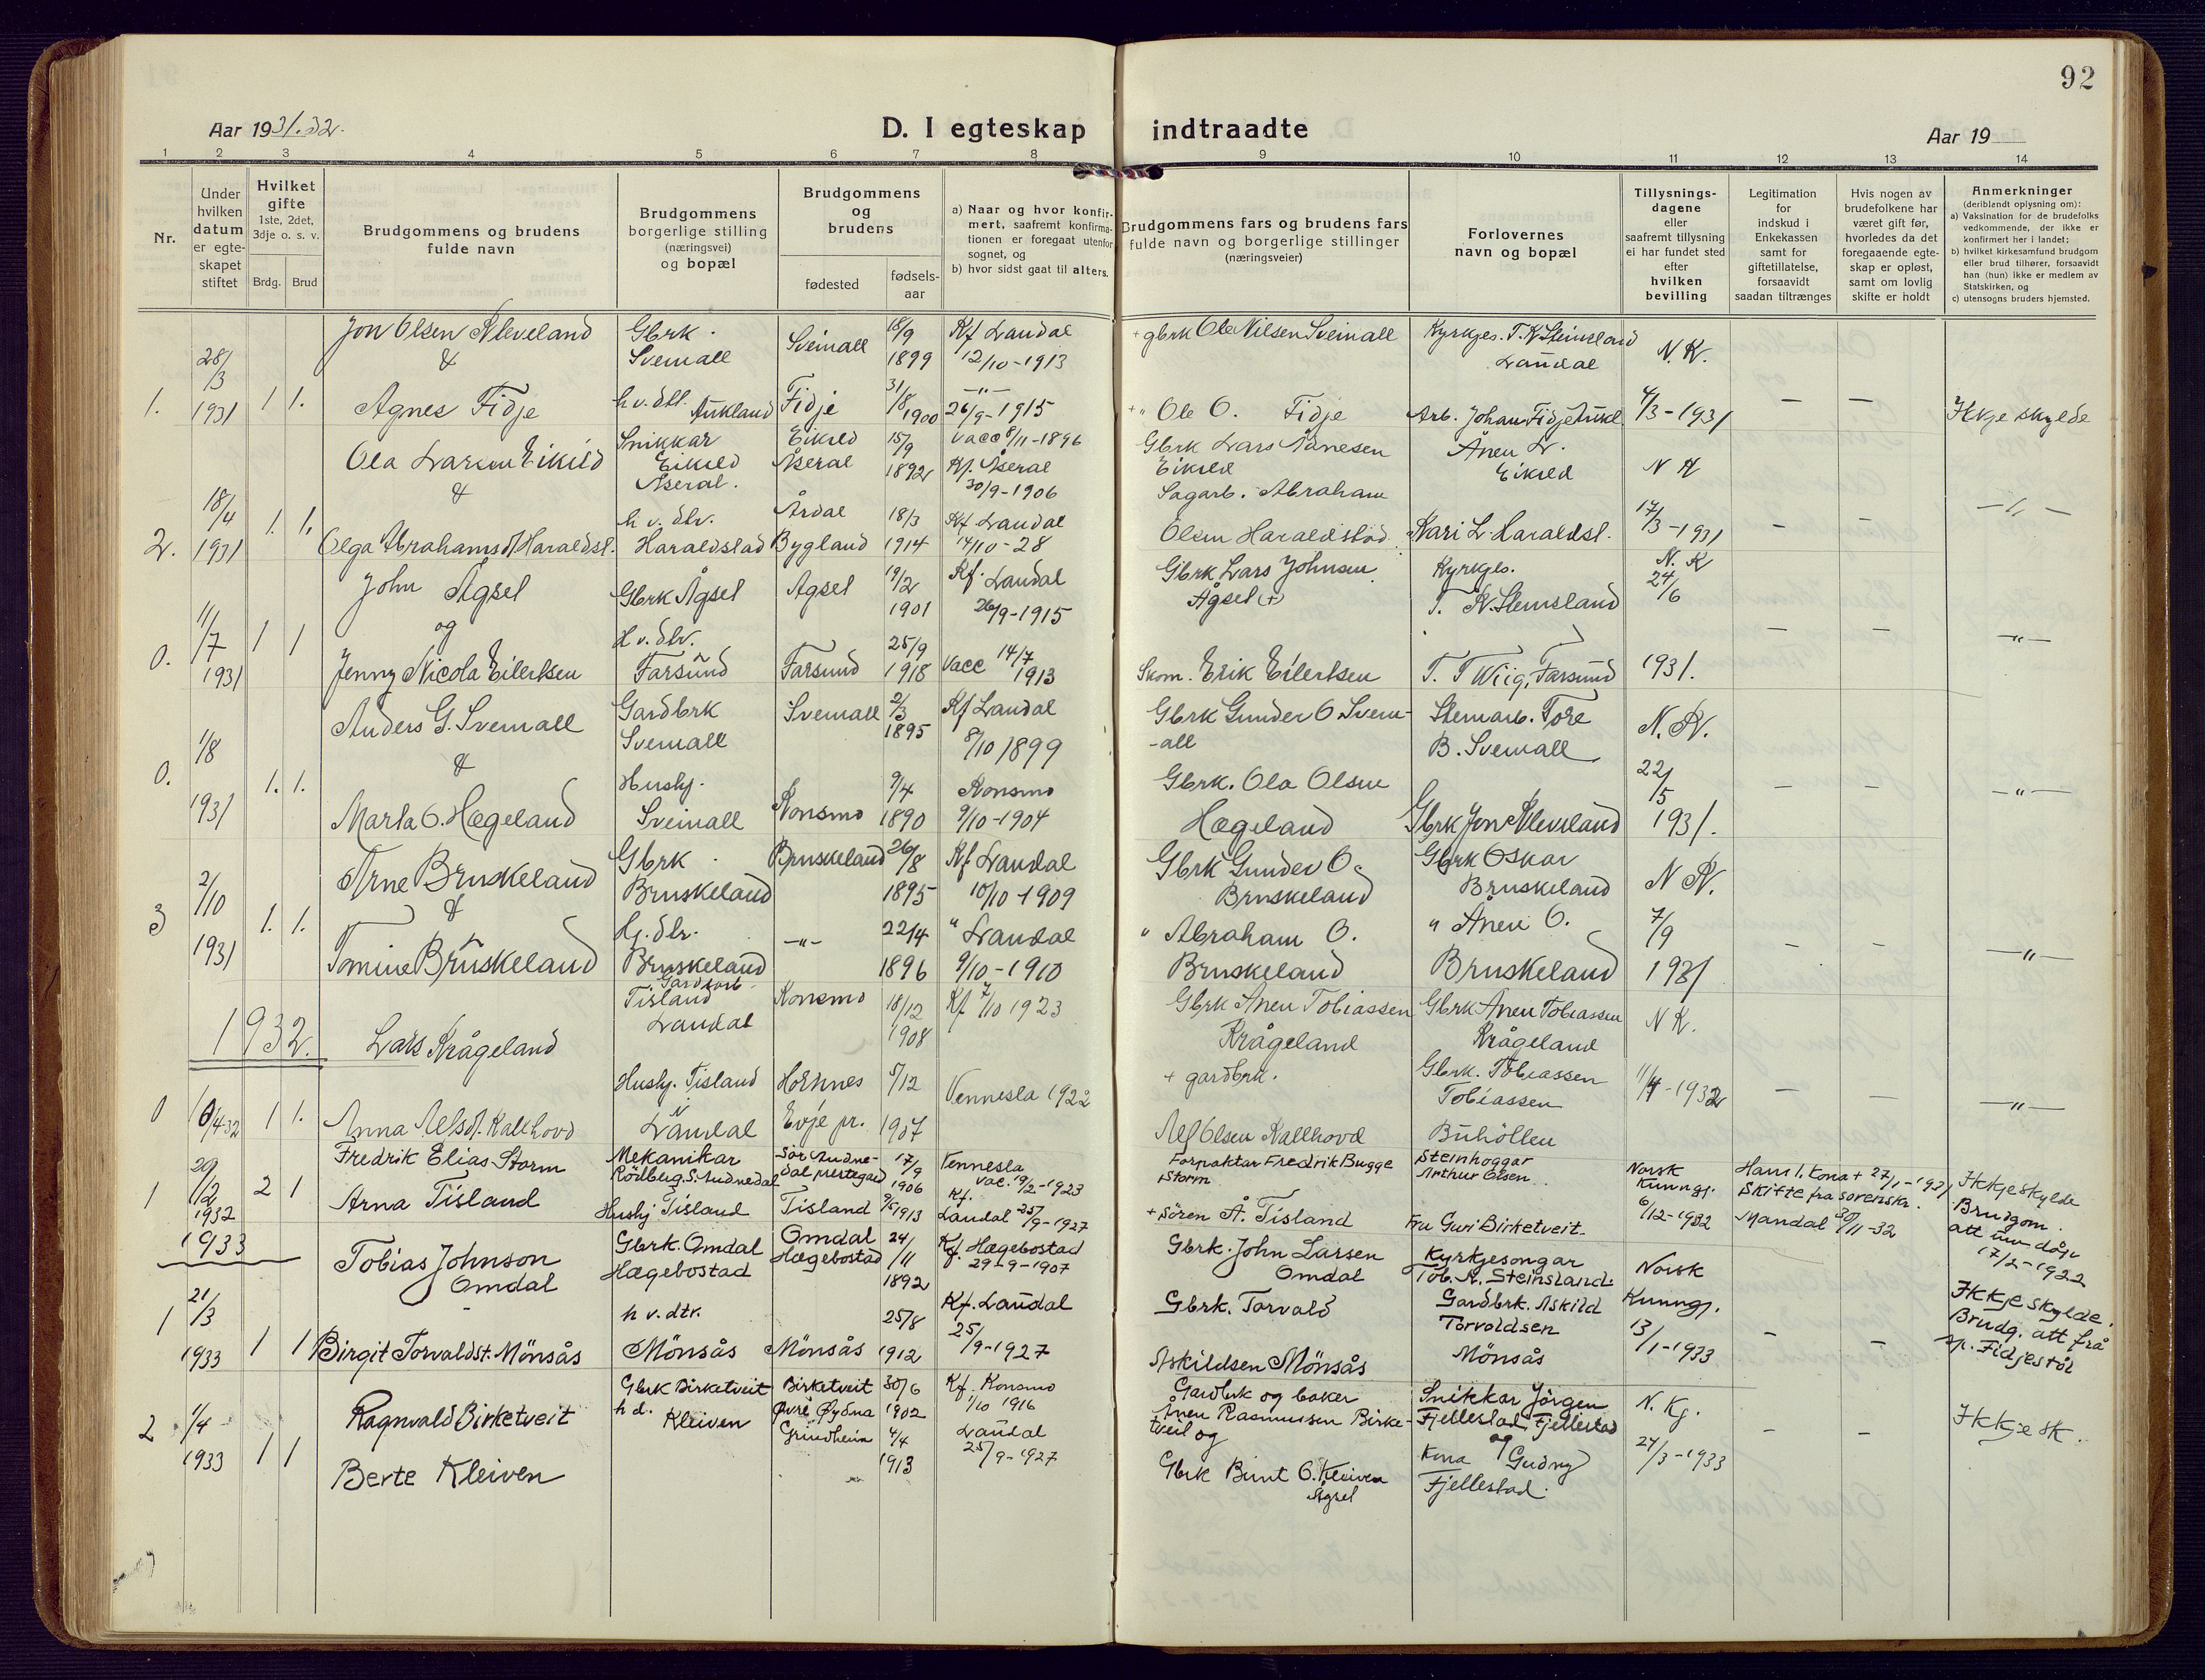 92
Aar 1931.32.
D. I egteskap indtraadte
Aar 19
1 2 3 4 5 6 7 8 9 10 11 12 13 14
Nr.
Under hvilken datum er egteskapet stiftet
Hvilket gifte 1ste, 2det, 3dje o. s. v.
Brdg. Brud
Brudgommens og brudens fulde navn
Brudgommens borgerlige stilling (næringsvei) og bopæl
Brudgommens og brudens
fødested
fødsels-aar
a) Naar og hvor konfir-
mert, saafremt konfirma-
tionen er foregaat utenfor
sognet, og
b) hvor sidst gaat til alters.
Brudgommens fars og brudens fars
fulde navn og borgerlige stillinger
(næringsveier)
Forlovernes
navn og bopæl
Tillysnings-
dagene
eller
saafremt tillysning
ei har fundet sted
efter
hvilken
bevilling
Legitimation
for
indskud i
Enkekassen
samt for
giftetillatelse,
forsaavidt
saadan tiltrænges
Hvis nogen av
brudefolkene har
været gift før,
hvorledes da det
foregaaende egte-
skap er opløst,
samt om lovlig
skifte er holdt
Anmerkninger
(deriblandt oplysning om):
a) Vaksination for de brudefolks
vedkommende, der ikke er
konfirmert her i landet;
b) hvilket kirkesamfund brudgom
eller brud tilhører, forsaavidt
han (hun) ikke er medlem av
Statskirken, og
c) utensogns bruders hjemsted.
Jon Olsen Kleveland Gbrk. Sveinall Sveinall 18/9 1899 Kf Laudal 12/10-1913 + gbrk Ole Nilsen Sveinall Kyrkjes. T. K. Steinsland Laudal N. K.
&
1. 28/3 1931 1 1. Agnes Fidje h v. dtl. Aukland Fidje 31/8 1900 —"— 26/9-1915 + " Ole O. Fidje Arb. Johan Fidje Aukl. 4/3-1931 — — Ikkje skylde
Ola Larsen Eikild Snikkar Eikild Åseral. Eikild Åseral 15/9 1892 vacc 8/11-1896 Kf. Åseral 30/9-1906 Gbrk Lars Ånesen Eikild Ånen L. Eikild N K
&
2. 18/4 1931 1. 1. Olga Abrahamsdt Haraldst. h v. dtr. Haraldstad Årdal Bygland 18/3 1914 Kf Laudal 14/10-28 Sagarb. Abraham Olsen Haraldstad Kari L. Haraldst. 17/3-1931 — — —"—
John Ågsel Gbrk Ågsel Agsel 19/2 1901 Kf. Laudal 26/9-1915 Gbrk Lars Johnsen Ågsel (+) Kyrkjes. T. K. Steinsland N. K 24/6
og
0. 11/7 1931 1 1 Jenny Nicola Eilertsen H v. dtr. Farsund Farsund 25/9 1918 Vacc 14/7 1913 Skom. Erik Eilertsen T. T Wiig, Farsund 1931. — — —"—
Anders G. Sveinall Gardbrk Sveinall Sveinall 2/3 1895 Kf Laudal 8/10 1899 Gbrk Gunder O Svein-
-all Steinarb. Tore B. Sveinall N. K.
&
0. 1/8 1931 1. 1. Marta O. Hægeland Hushj. Sveinall Konsmo 9/4 1890 Konsmo 9/10-1904 Gbrk. Ola Olsen Hægeland Gbrk Jon Kleveland 22/5 1931. — — —"—
Arne Bruskeland Gbrk Bruskeland Bruskeland 26/8 1895 Kf Laudal 10/10-1909 Gbrk Gunder O. Bruskeland Gbrk Oskar Bruskeland N K.
&
3 2/10 1931 1. 1. Tomine Bruskeland Hj. dtr. Bruskeland —"— 22/4 1896 " Laudal 9/10-1910 " Abraham O. Bruskeland " Ånen O. Bruskeland 7/9 1931 — — —"—
1932. Lars Krågeland Gardsarb Tisland Laudal Konsmo 18/12 1908 Kf 7/10 1923 Gbrk Ånen Tobiassen Krågeland Gbrk Ånen Tobiassen Krågeland N K.
0 16/4-32 1 1. Anna Alfsdt. Kallhovd Hushj. Tisland Laudal Hornnes Evje pr. 5/12 1907 Vennesla 1922 + gardbrk. Alf Olsen Kallhovd Gbrk. Tobiassen Tobiassen Buhöllen 11/4-1932 — — —"—
Fredrik Elias Storm Mekanikar Rölberg. S. Audnedal Sör Audne-
dal prestegard 17/9 1906 Vennesla vac. 19/2-1923 Forpaktar Fredrik Bugge Storm Steinhoggar Arthur Olsen Norsk Kunngj.
1 20/12 1932 2 1 Arna Tisland Hushj Tisland Tisland 9/5 1913 Kf. Laudal 25/9-1927 + Sören Å. Tisland Fru Guri Birketveit. 6/12-1932 Hans 1. kona + 27/1-1931 Skifte fra sorenskr. Mandal 30/11-32 Ikkje skylde Brudgom. att umdöpt 17/2-1922
1933
Tobias Johnson Omdal Gbrk. Omdal Hægebostad Omdal Hægebostad 24/11 1892 Kf. Hægebostad 29-9-1907 Gbrk. John Larsen Omdal Kyrkjesongar Tob. K. Steinsland. Norsk Kunngj.
1 21/3 1933 1 1 Birgit Torvaldst. Mönsås h v. dtr. Mönsås Mönsås 25/8 1912 Kf. Laudal 25/9-1927 Gbrk. Torvald Askildsen Mönsås Gardbrk. Askild Torvaldsen Mönsås 13/1-1933 — — Ikkje skylde. Brudg. att frå sp. Fidjestöl
Ragnvald Birketveit Gbrk Birketveit Birketveit Øvre Øydna 30/6 1902 Kf. Konsmo 1/10 1916 Gardbrk og baker Ånen Rasmussen Birke-
tveit og Snikkar Jörgen Fjellestad, Fjellestad N. Kj.
2 1/4 1933 1 1 Berte Kleiven h d. Kleiven Grindheim 4/4 1913 Laudal 25/9-1927 Gbrk Bernt O. Kleiven Ågsel og Kona Gudny Fjellestad. 24/3-1933 — — Ikkje sk.